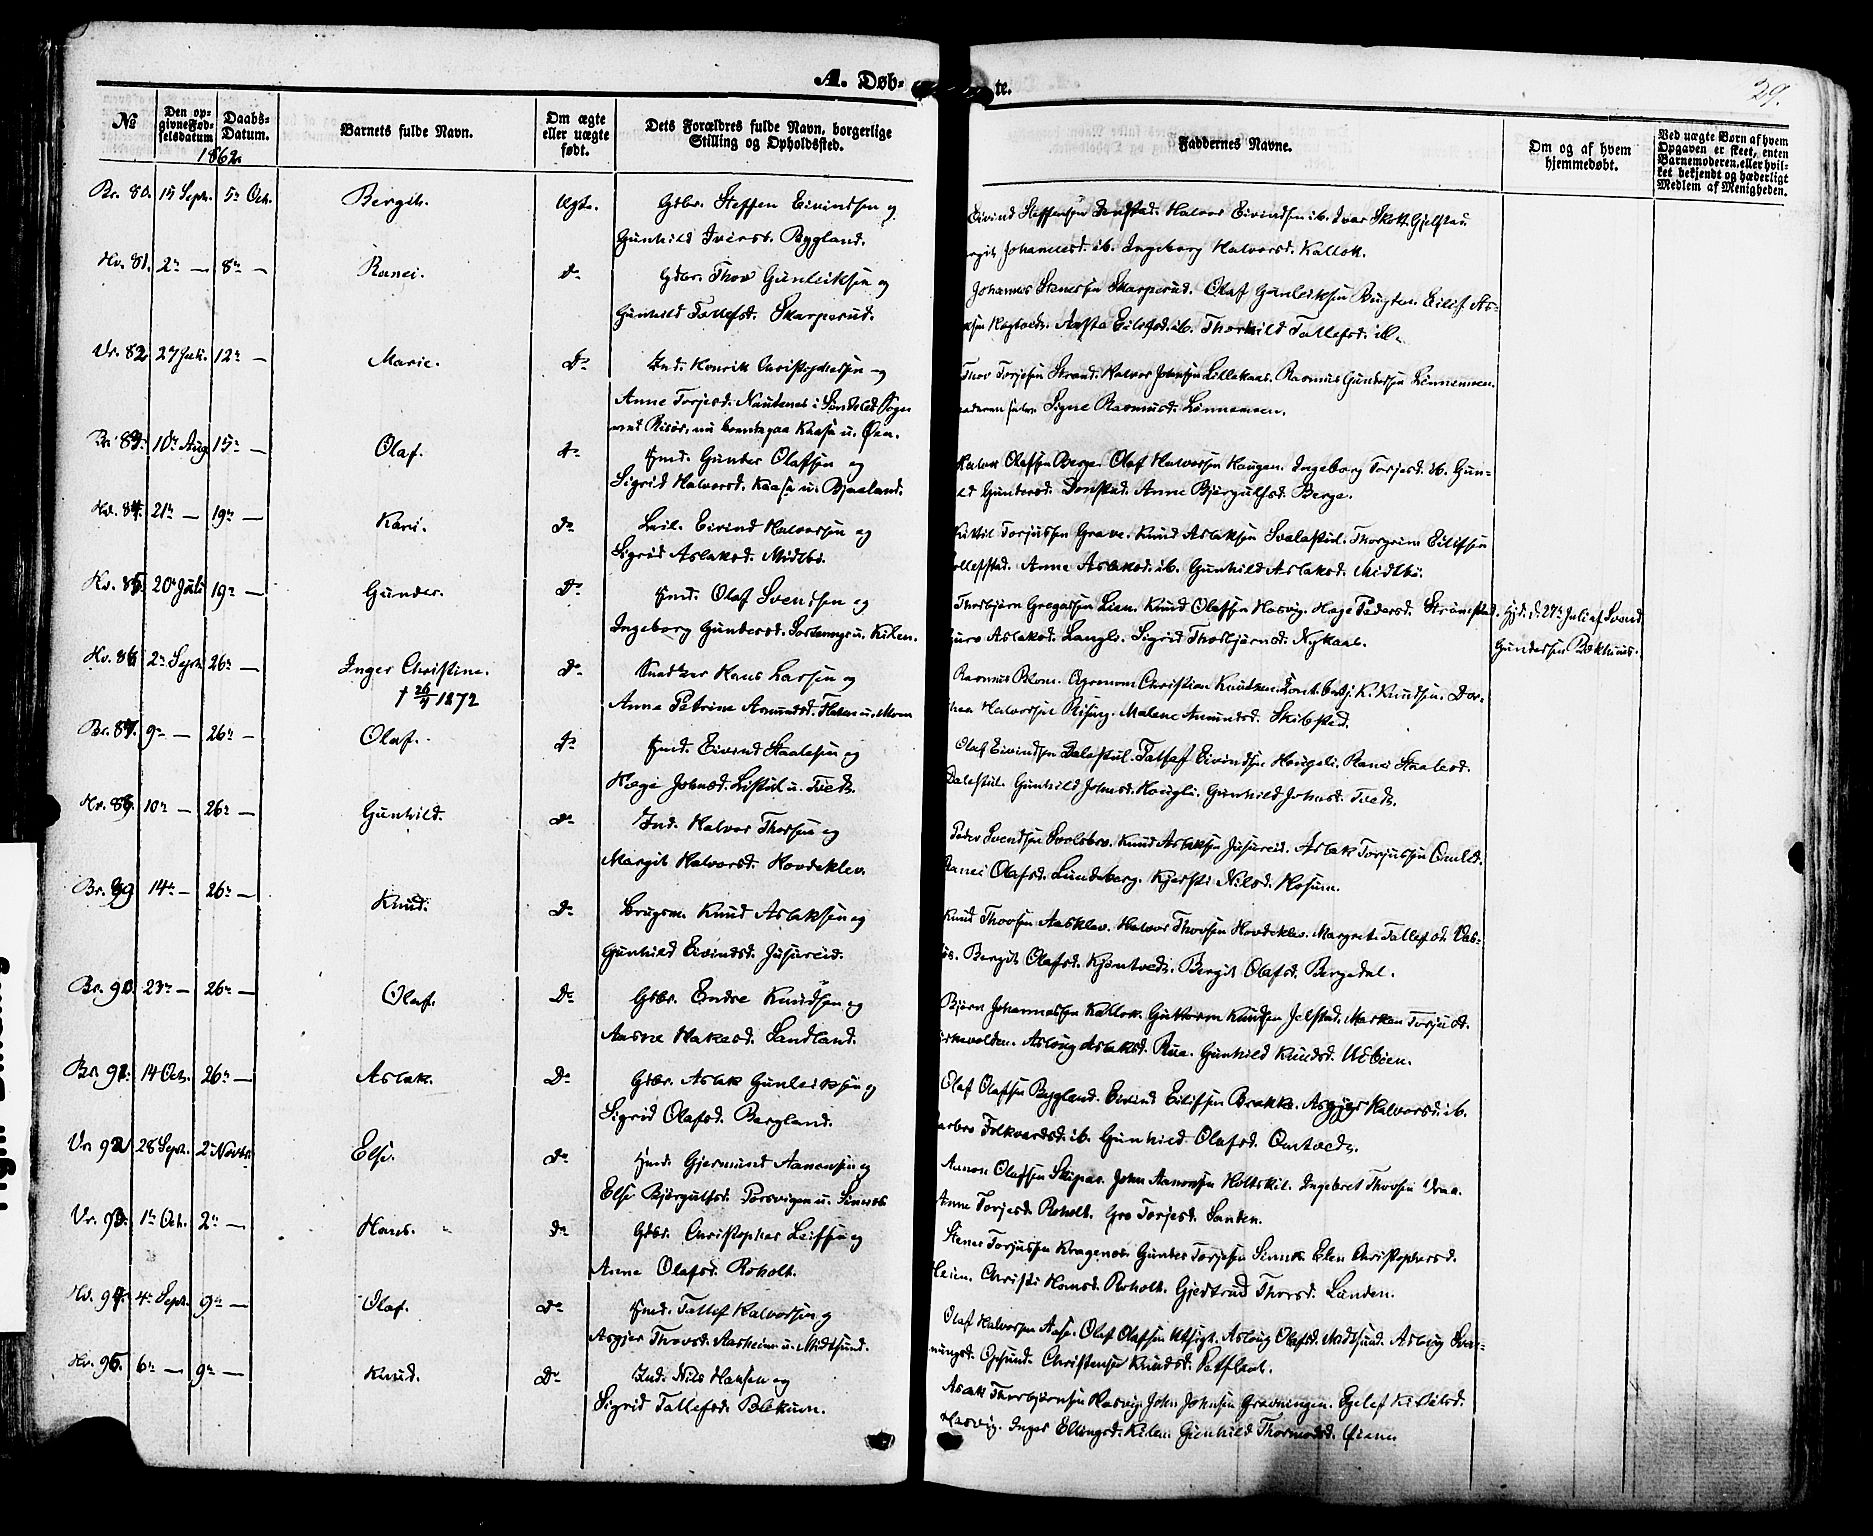 A. Døb- te.
29.
№
Den op-
givne Fød-
selsdatum
Daabs-
Datum.
1862.
Barnets fulde Navn.
Om ægte
eller uægte
født.
Dets Forældres fulde Navn, borgerlige
Stilling og Opholdssted.
Faddernes Navne.
Om og af hvem
hjemmedøbt.
Ved uægte Børn af hvem
Opgaven er skeet, enten
Barnemoderen, eller hvil-
ket bekjendt og hæderligt
Medlem af Menigheden.
Br. 80. 15 Septr. 5te Octr. Bergit. Ægte. Gdbr. Steffen Eivindsen og
Gunhild Iversd. Bygland.
Eivind Steffensen Halvor Eivindsen ib. Ivar
Johannesd. ib. Ingeborg Halvorsd. Kallok.
Hv. 81. 2n — 8n — Ranei. do Gdbr. Thov Gunleiksen og
Gunhild Tollefsd. Skarperud.
Johannes Stenersen Skarperud. Olaf Gunleiksen Bugten. Eilif As-
Eilefsd. ib. Thorhild Tollefsd. ib.
Vr. 82 27 Juli. 12n — Marie. Do Ind. Henrik Christophersen og
Anne Torjesd. i Søndeled Sogn
ved Risør, nu Kaasa u. Øen.
Thov Torjesen Strand. Halvor Johnsen Lillekaas. Rasmus Gundersen Lønnemoen.
Signe Rasmusd. Lønnemoen.
Br. 83. 10de Aug. 15n — Olaf. do Hmd. Gunder Olafsen og
Sigrid Halvorsd. Kaasa u. Bjaaland.
Halvor Olafsen Berge. Olaf Halvorsen Haugen. Ingeborg Torjesd. ib. Gun-
ild Gundersd. Anne Bjørgulfsd. Berge.
Hv. 84. 21n — 19n — Kari. do Leil. Eivind Halvorsen og
Sigrid Aslaksd. Midtbø.
Kittil Torjussen Grave. Knud Aslaksen Svalastul. Thorgrim Eilifsen
Tollefstad. Anne Aslaksd. ib. Gunhild Aslaksd. Midtbø.
Hv. 85. 20de Juli 19n — Gunder. Do Hmd. Olaf Svendsen og
Ingeborg Gundersd. u. Kilen.
Thorbjørn Gregarsen Lien. Knud Olafsen Hasvig. Hæge Pedersd. Strømstad.
Guro Aslaksd. Sigrid Thorbjørnsd. Nykaas.
Hjd. d. 27n Juli af Svend
Gundersen
Hv. 86 2n Septr. 26n — Inger Christine. Do Snedker Hans Larsen og
† 26/4 1872
Anne Petrine Amundsd. u. Moen
Rasmus Blom. Agronom Christian Knudsen. K. Knudsen. Dor-
thea Halvorsen Rising. Malene Amundsd. Skibsted.
Br. 87. 9n — 26n — Olaf. Do Hmd. Eivind Staalesen og
Hæge Johnsd. Listul u. Tvedt.
Olaf Eivindsen Dalastul. Tallef Eivindsen Haugeli. Ranei Staalesd.
Dalestul. Gunhild Johnsd. Haugli. Gunhild Johnsd. Tvedt.
Hv. 88. 10n — 26n — Gunhild. Do Ind. Halvor Thorsen og
Margit Halvorsd. Hovdeklev.
Peder Svendsen Knud Aslaksen Jusureid. Aslak Torjussen
Ranei Olafsd. Lundeberg. Kjersti Nilsd. Mosum.
Br. 89 14n — 26n — Knud. Do Brugsm. Knud Aslaksen og
Gunhild Eivindsd. Jusureid.
Knud Thovsen Aasklev. Halvor Thovsen Hovdeklev. Margret Tallefsd.
Bergit Olafsd. Kjøntvedt. Bergit Olafsd. Bergedal.
Br. 90. 23n — 26n — Olaf. Do Gdbr. Endre Knudsen og
Aasne Hakesd. Landland.
Bjørn Johannessen Kallok. Guttorm Knudsen Jelstad. Torjusd.
Kirkevolden. Aslaug Aslaksd. Rue. Gunhild Knudsd.
Br. 91. 14 Octr. 26n — Aslak. Do Gdbr. Aslak Gunleiksen og
Sigrid Olafsd. Bergland.
Olaf Olafsen Bygland. Eivind Eilifsen Brekke. Asgjer Halvorsd. ib.
Folkvardsd. ib. Gunhild Olafsd. Omtvedt.
Vr. 92. 28 Septr. 2 Novbr. Else. Do Hmd. Gjermund Aanonsen og
Else Bjørgulfsd. Porsvigen u. Sinnes
Aanon Olafsen John Aanonsen Holtskil. Ingebret Thovsen
Anne Torjesd. Roholt. Gro Torjesd. Sanden.
Vr. 93. 1n Octr. 2n — Hans. Do Gdbr. Christopher Leifsen og
Anne Olafsd. Roholt.
Stener Torjussen Kragenæs. Gunder Torjesen Sinnes. Elen Christophersd.
Heien. Christi Hansd. Roholt. Gjertrud Thorsd. Sanden.
Hv. 94. 4n Septr. 9n — Olaf. Do Hmd. Tallef Halvorsen og
Asgjer Thovsd. Aasheim u. Midtsund.
Olaf Halvorsen Aase. Olaf Olafsen Utsigt. Aslaug Olafsd. Midtsund. Aslaug
Opsund. Christense Knudsd.
Hv. 95. 6n — 9n — Knud. Do Ind. Nils Hansen og
Sigrid Tallefsd. Blekum.
Aslak Thorbjørnsen Hasvig. John Johnsen Gravningen. Egelef Kittilsd.
Hasvig. Inger Ellingsd. Kilen. Gunhild Thormodsd.